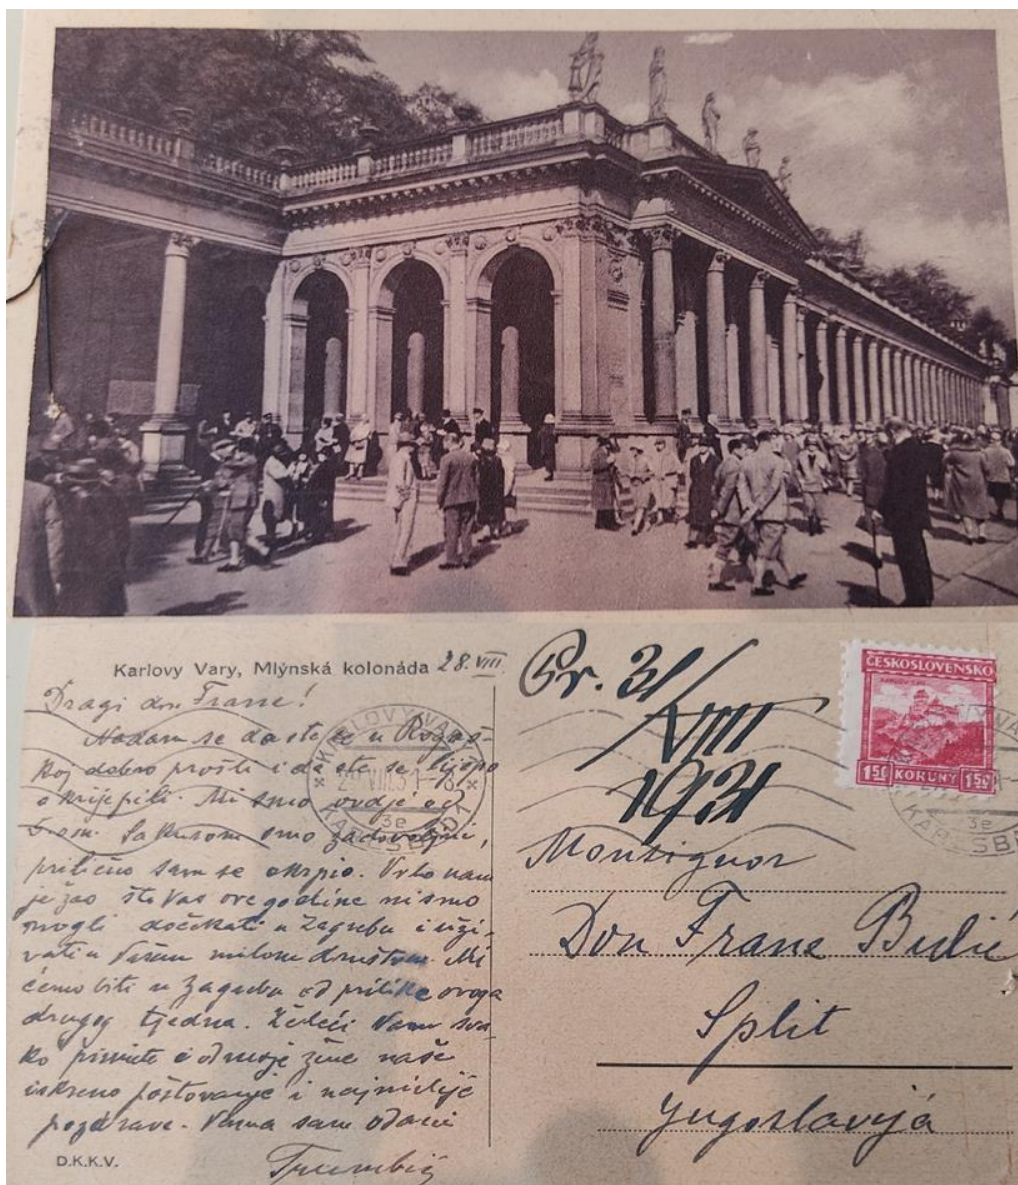 Karlovy Vary, Mlýnská kolonáda 28. VIII.
Dragi don Frane!
Nadam se da ste se u Rogaš-
koj dobro prošli i da ste se lijepo
okrijepili. Mi smo ovdje od
Sa kurom smo zadovoljni,
prilično sam se okrpio. Vrlo nam
je žao što Vas ove godine nismo
mogli dočekati u Zagrebu i uži-
vati u Vašem milom društvu. Mi
ćemo biti u Zagrebu od prilike ovoga
drugog tjedna. Želeći Vam sva-
ko primite i od moje žene naše
iskreno poštovanje i najmilije
pozdrave. Vama sam odani
Trumbić
D.K.K.V.
Pr. 31/
VIII
1931
ČESKOSLOVENSKO
1.50 KORUNY 1.50
KARLOVY VARY
3e
KARLSBAD 1
Monsignor
Don Frane Bulić
Split
Jugoslavija